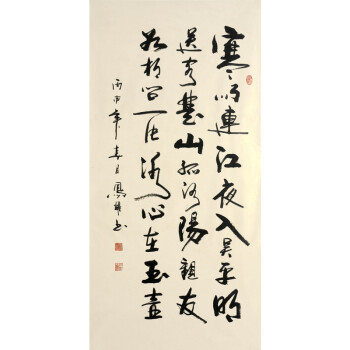 寒雨連江夜入吴平明
送客楚山孤洛陽親友
如相问一片冰心在玉壶
丙申年春月鳳书